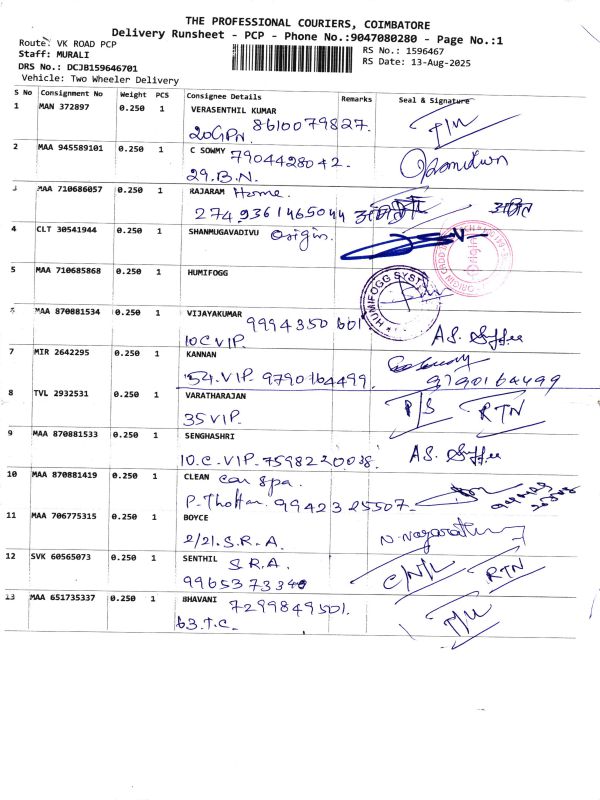 THE PROFESSIONAL COURIERS, COIMBATORE
Delivery Runsheet - PCP - Phone No.:9047080280 - Page No.:1
Route: VK ROAD PCP
Staff: MURALI
DRS No.: DCJB159646701
Vehicle: Two Wheeler Delivery
RS No.: 1596467
RS Date: 13-Aug-2025
S No Consignment No Weight PCS Consignee Details Remarks Seal & Signature
1 MAN 372897 0.250 1 VERASENTHIL KUMAR
20GPN 8610079827. T/U
2 MAA 945589101 0.250 1 C SOWMY 7904428042.
29.B.N.
3 MAA 710686057 0.250 1 RAJARAM Home.
274 9361465044
4 CLT 30541944 0.250 1 SHANMUGAVADIVU Origin.
5 MAA 710685868 0.250 1 HUMIFOGG
HUMIFOGG SYST
6 MAA 870881534 0.250 1 VIJAYAKUMAR 9994350601
10C VIP.
7 MIR 2642295 0.250 1 KANNAN
54.VIP. 9790164499. 9790164499
8 TVL 2932531 0.250 1 VARATHARAJAN P/S RTN
35 VIP.
9 MAA 870881533 0.250 1 SENGHASHRI
10.C.VIP. 7598220038.
10 MAA 870881419 0.250 1 CLEAN Car Spa.
P.Thottam. 9942325507-
11 MAA 706775315 0.250 1 BOYCE
2/21.S.R.A.
12 SVK 60565073 0.250 1 SENTHIL S.R.A. C/N/L RTN
9965373340
13 MAA 651735337 0.250 1 BHAVANI 7299849501.
63.T.C. T/U